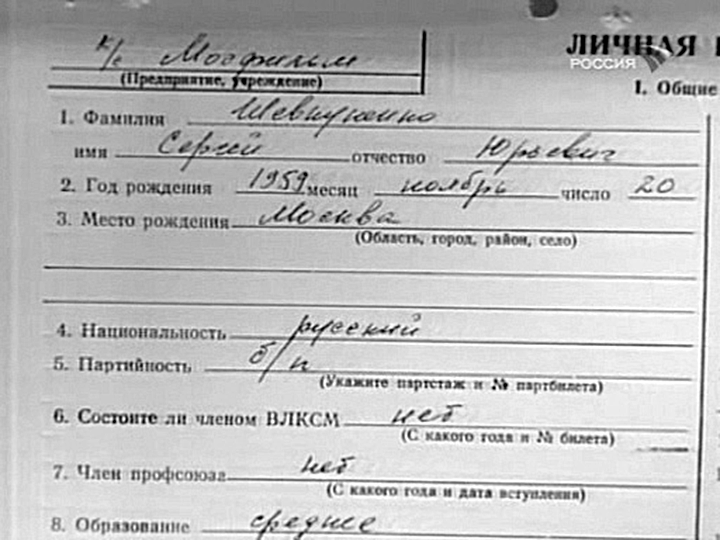 к/с Мосфильм
(Предприятие, учреждение)
ЛИЧНАЯ
РОССИЯ
I. Общие
1. Фамилия Шевкуненко
имя Сергей отчество Юрьевич
2. Год рождения 1959 месяц ноябрь число 20
3. Место рождения Москва
(Область, город, район, село)
4. Национальность русский
5. Партийность б/п
(Укажите партстаж и № партбилета)
6. Состоите ли членом ВЛКСМ нет
(С какого года и № билета)
7. Член профсоюза нет
(С какого года и дата вступления)
8. Образование среднее